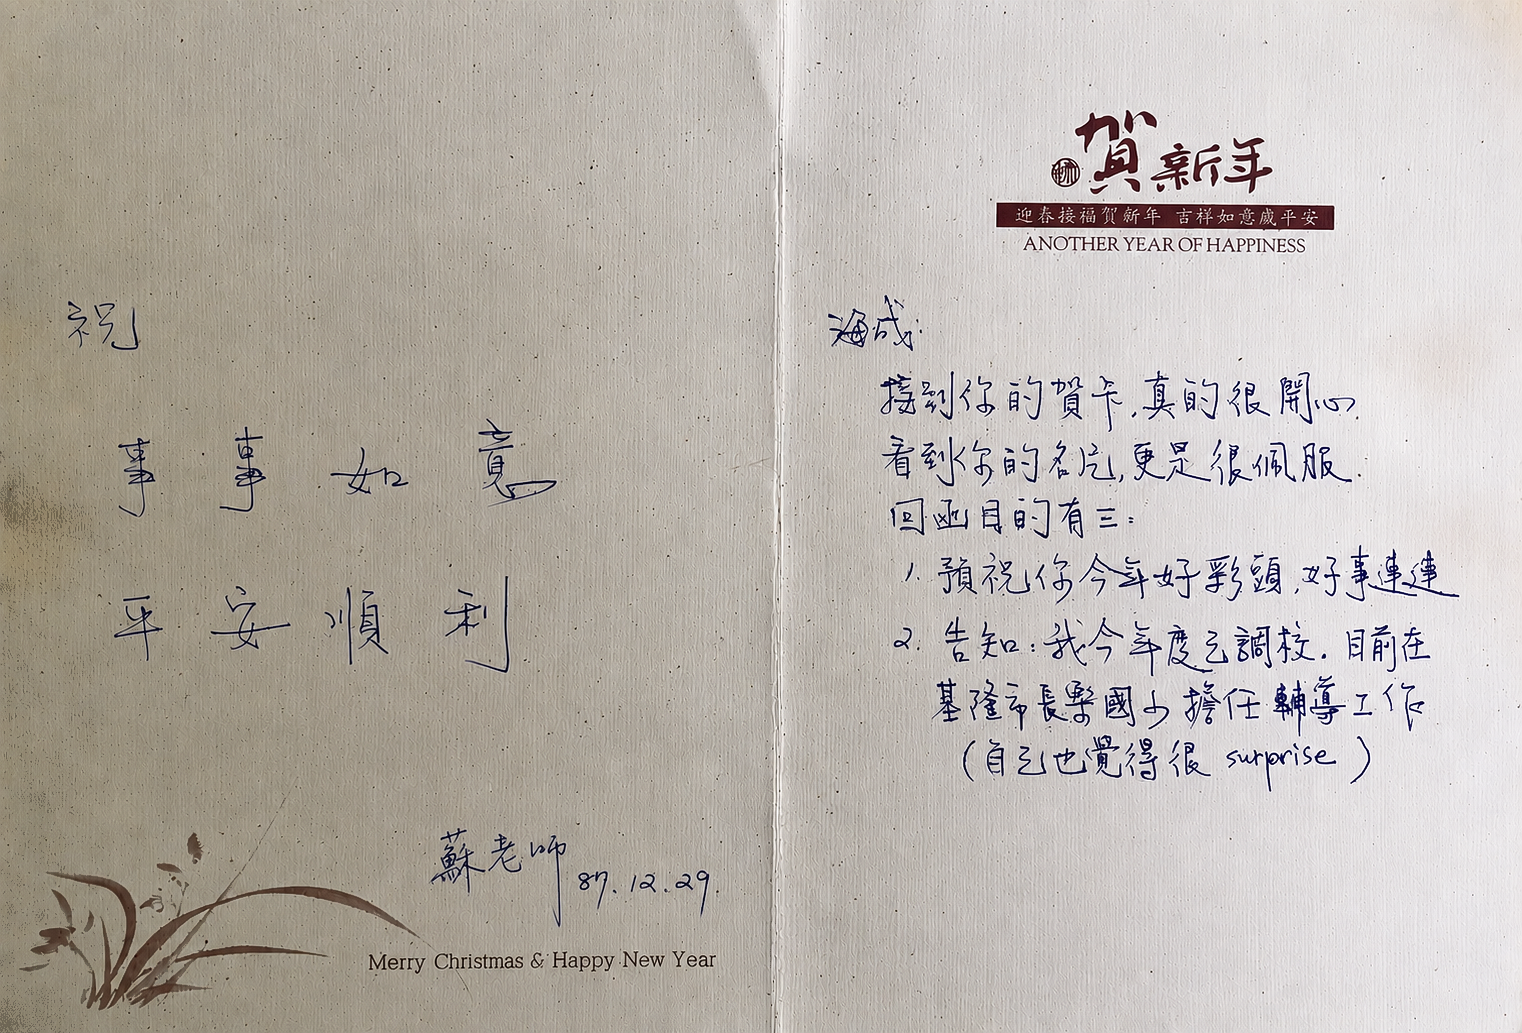 祝
事事如意
平安順利
蘇老師
87.12.29.
Merry Christmas & Happy New Year
賀新年
迎春接福賀新年 吉祥如意歲平安
ANOTHER YEAR OF HAPPINESS
海成:
接到你的賀卡,真的很開心.
看到你的名片,更是很佩服.
回函目的有三:
1. 預祝你今年好彩頭,好事連連
2. 告知:我今年度已調校.目前在
基隆市長樂國小擔任輔導工作
(自己也覺得很 surprise)